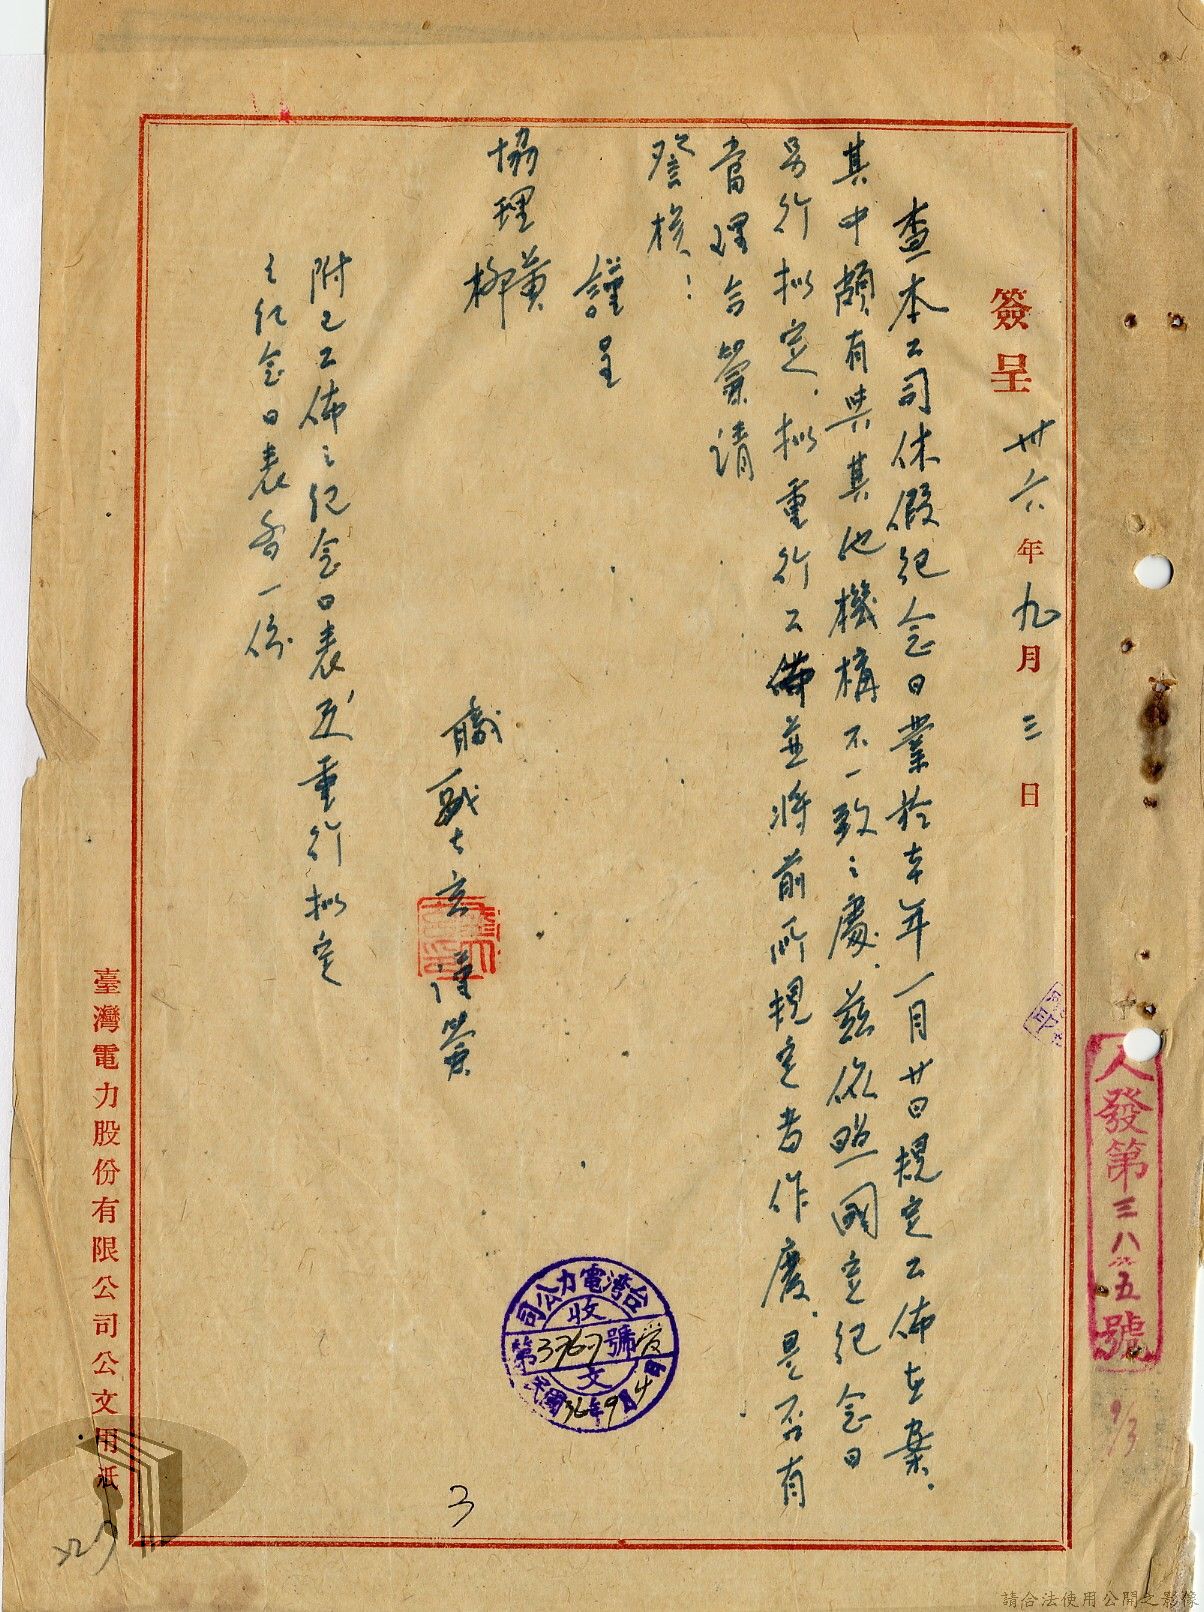 簽呈 卅六年九月三日
查本公司休假紀念日業於本年一月廿日規定公佈在案.
其中頗有與其他機構不一致之處.茲依照國定紀念日
另行拟定.拟重行公佈並將前所規定者作廢.是否有
當理合簽請
詧核:
謹呈
協理黃
柳
職 謹簽
附已公佈之紀念日表及重行拟定
之紀念日表各一份
臺灣電力股份有限公司公文用紙
人發第三八五號
9/3
台灣電力公司
收
第3767號
文
民國36年9月4日
3
請合法使用公開之影像